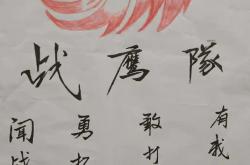 战鹰隊
闻战
勇
敢打
有我